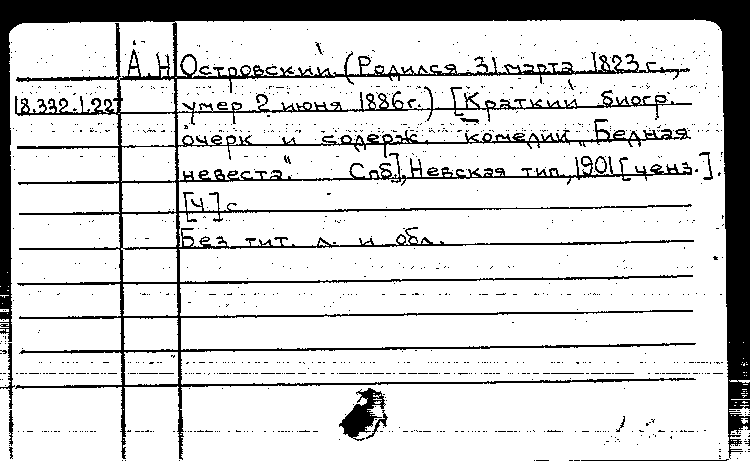 А.Н Островский. (Родился 31 марта 1823 г.,
18.332.1.227 умер 2 июня 1886 г.) [Краткий биогр.
очерк и содерж. комедии „Бедная
невеста“. Спб], Невская тип., 1901 [ценз.].
[4] с
Без тит. л. и обл.